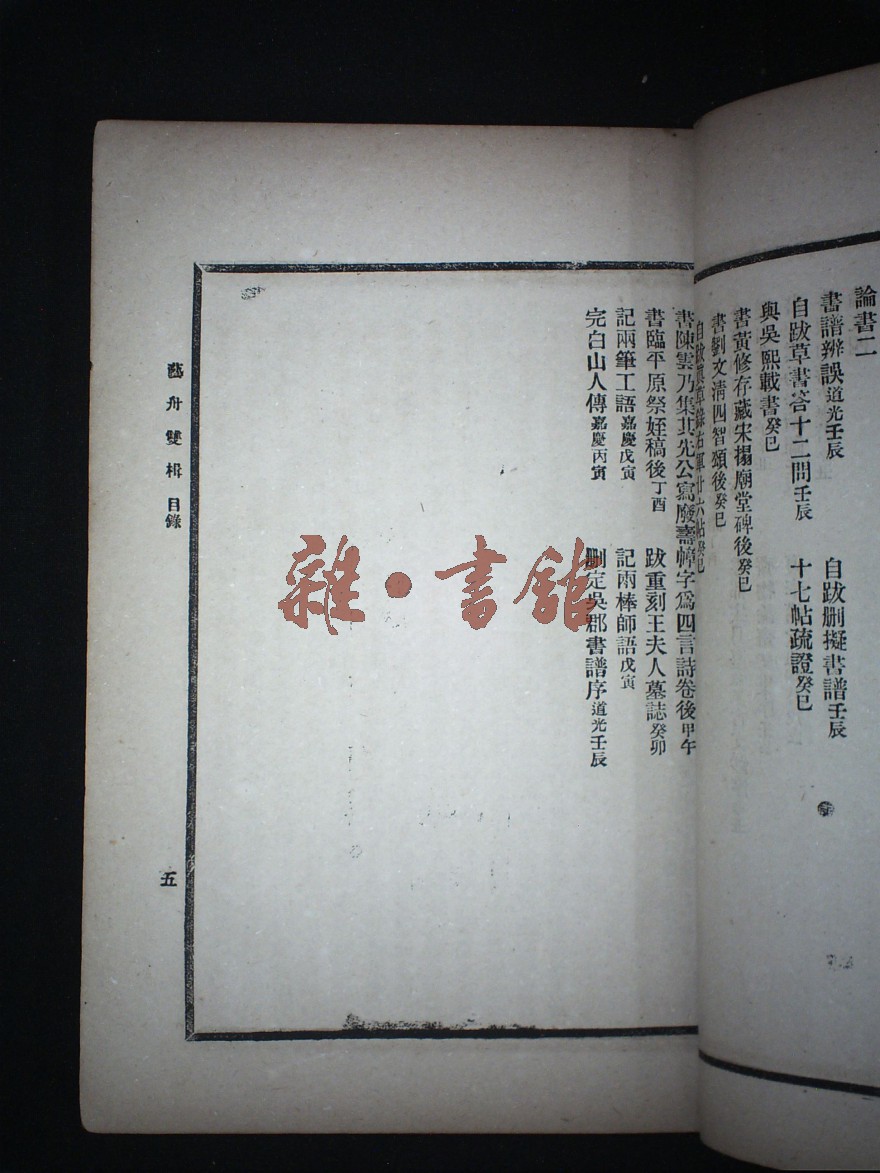 論書二
書譜辨誤道光壬辰 自跋删擬書譜壬辰
自跋草書答十二問壬辰 十七帖疏證癸巳
與吳熙載書癸巳
書黃修存藏宋搨廟堂碑後癸巳
書劉文清四智頌後癸巳
自跋真草錄右軍廿六帖癸巳
書陳雲乃集其先公寫廢壽幛字爲四言詩卷後甲午
書臨平原祭姪稿後丁酉 跋重刻王夫人墓誌癸卯
記兩筆工語嘉慶戊寅 記兩棒師語戊寅
完白山人傳嘉慶丙寅 删定吳郡書譜序道光壬辰
藝舟雙楫 目錄
五
雜·書館